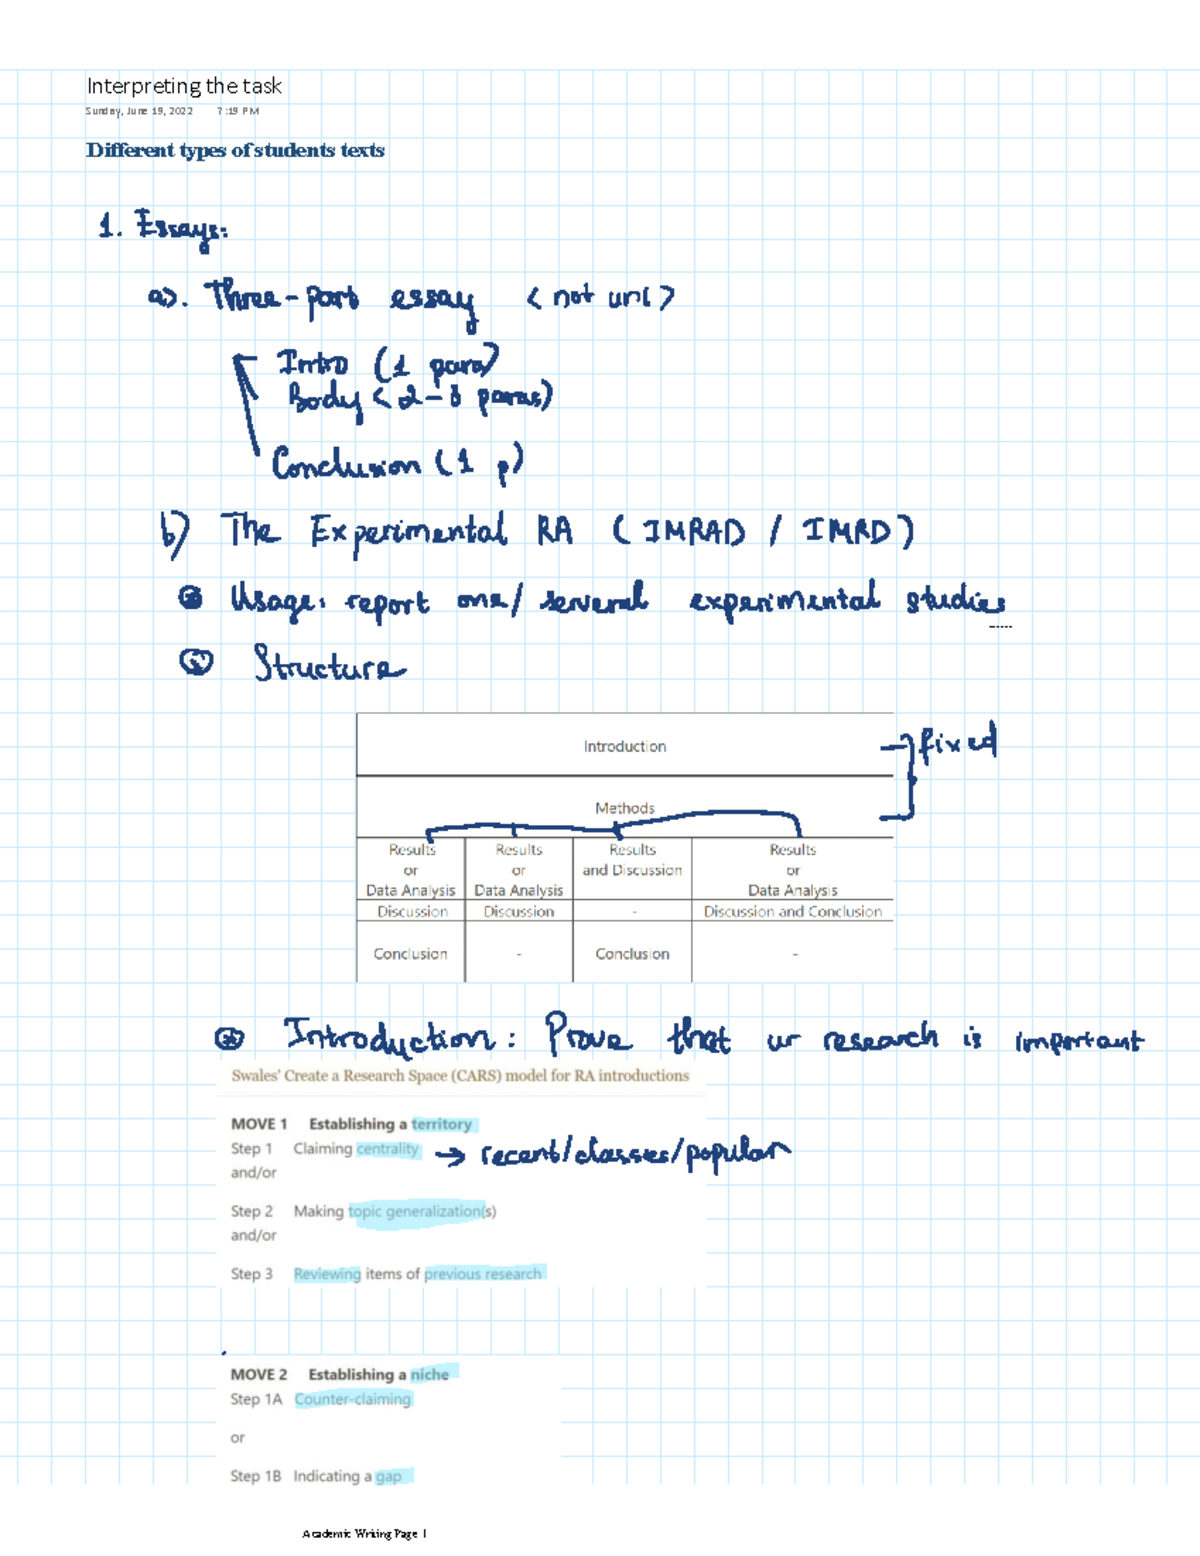 Interpreting the task
Sunday, June 19, 2022 7:19 PM
Different types of students texts
1. Essays:
a). Three-part essay < not uni >
Intro (1 para)
Body (2-3 paras)
Conclusion (1 p)
b) The Experimental RA ( IMRAD / IMRD )
Usage: report one/ several experimental studies
Structure
Introduction
fixed
Methods
Results Results Results Results
or or and Discussion or
Data Analysis Data Analysis Data Analysis
Discussion Discussion - Discussion and Conclusion
Conclusion - Conclusion -
Introduction: Prove that ur research is important
Swales' Create a Research Space (CARS) model for RA introductions
MOVE 1 Establishing a territory
Step 1 Claiming centrality → recent/classes/popular
and/or
Step 2 Making topic generalization(s)
and/or
Step 3 Reviewing items of previous research
MOVE 2 Establishing a niche
Step 1A Counter-claiming
or
Step 1B Indicating a gap
Academic Writing Page 1